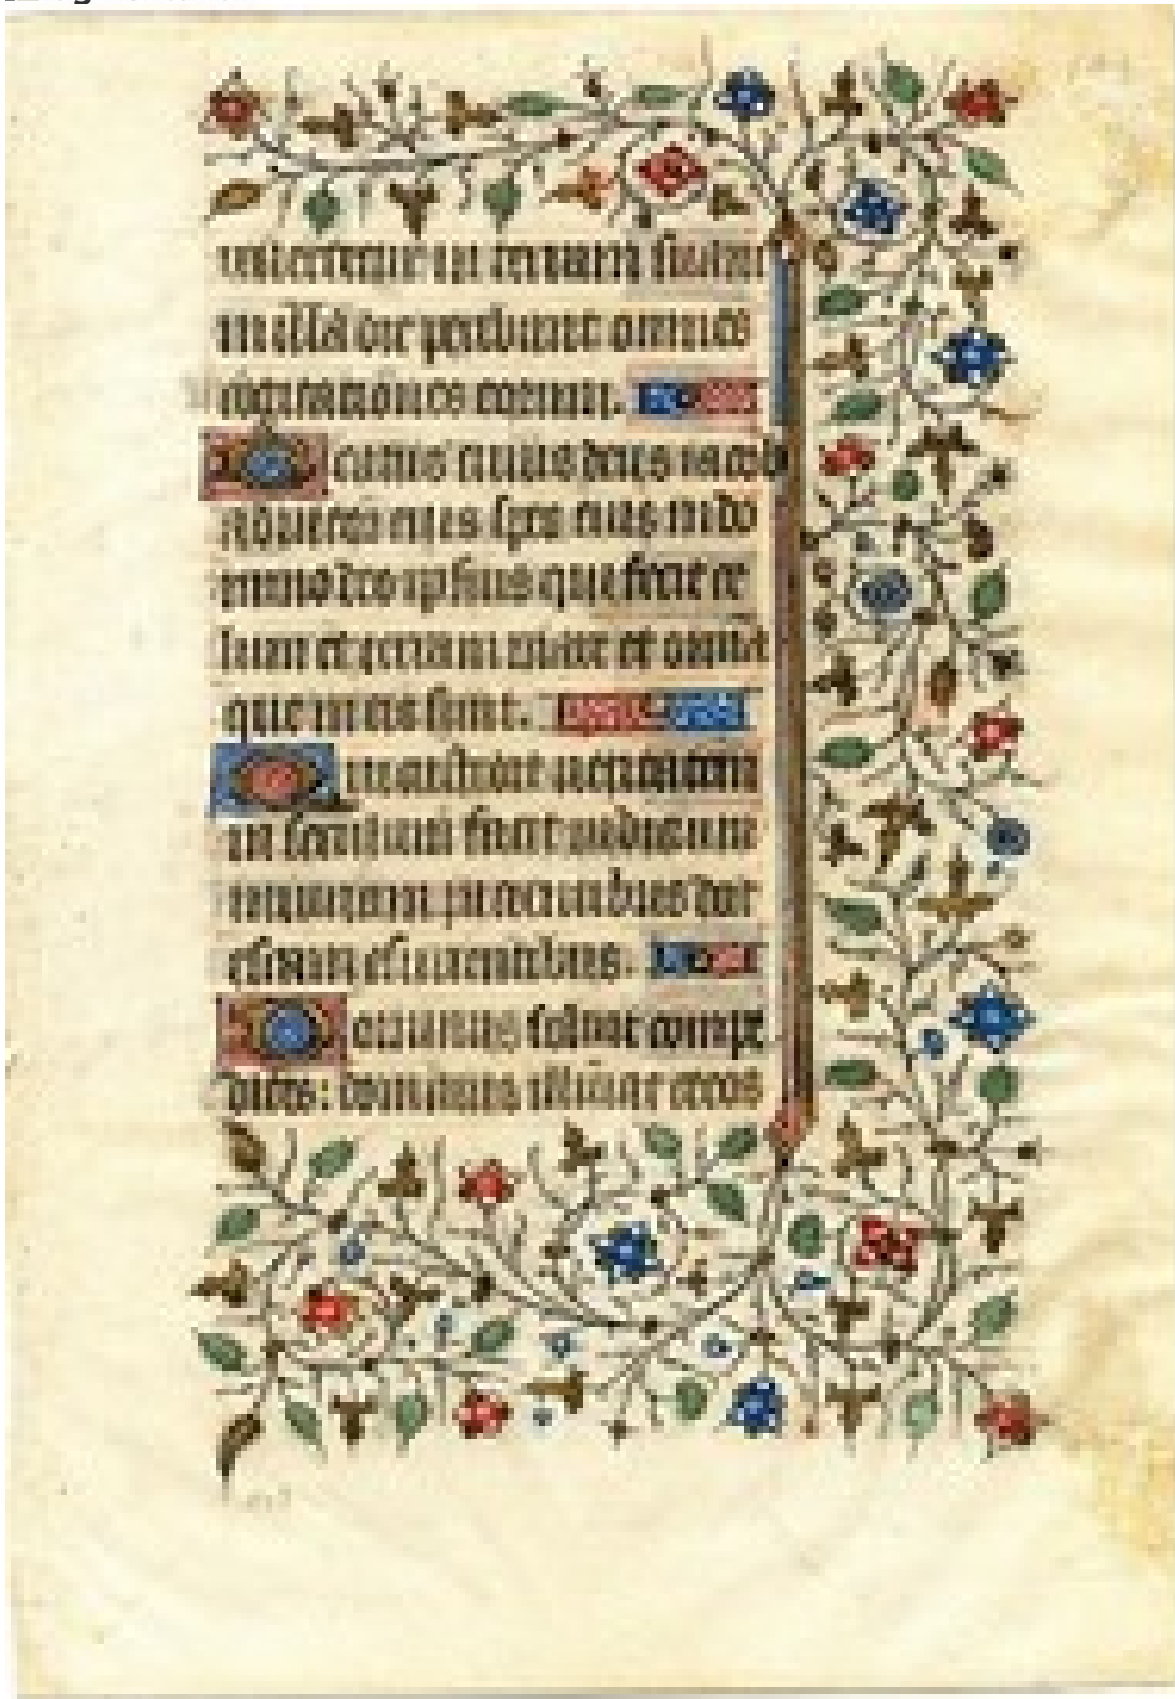 revertetur in terram suam in
illa die peribunt omnes
cogitationes eorum.
Beatus cuius deus iacob
adiutor eius spes eius in do
mino deo ipsius qui fecit ce
lum et terram mare et omnia
que in eis sunt.
Qui custodit veritatem
in seculum facit iudicium
iniuriam pacientibus dat
escam esurientibus.
Dominus solvit compe
ditos: dominus illuminat cecos